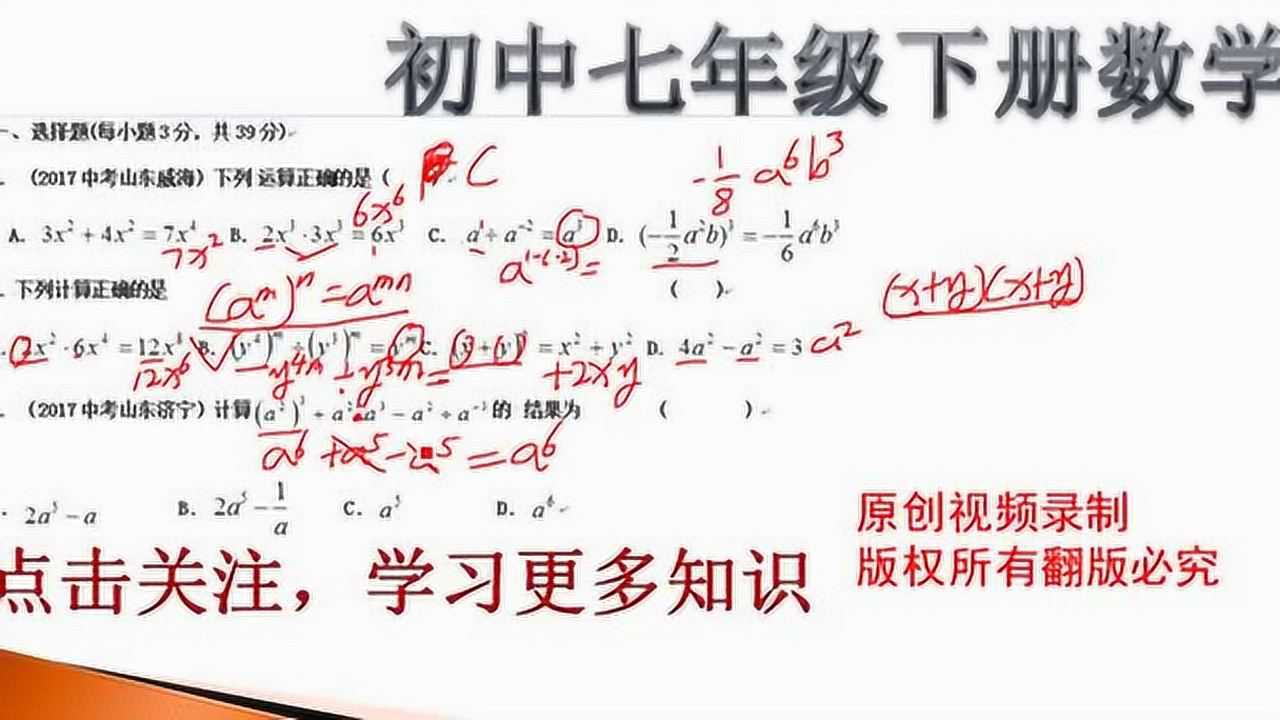 初中七年级下册数学
一、选择题(每小题3分，共39分)
. （2017中考山东威海）下列运算正确的是（ C
-1/8 a⁶b³
6x⁶
A. 3x² + 4x² = 7x⁴ B. 2x³·3x³ = 6x³ C. a ÷ a⁻² = a³ D. (-1/2 a²b)³ = -1/6 a⁶b³
7x² a¹⁻⁽⁻²⁾=
. 下列计算正确的是 ( ).
(aᵐ)ⁿ=aᵐⁿ (x+y)(x+y)
. 2x²·6x⁴ = 12x⁸ B. (y⁴)ᵐ ÷ (y³)ᵐ = yᵐ C. (x + y)² = x² + y² D. 4a² - a² = 3 a²
12x⁶ y⁴ᵐ ÷ y³ᵐ= +2xy
. （2017中考山东济宁）计算(a²)³ + a²·a³ - a² ÷ a⁻³的 结果为 ( ).
a⁶ +a⁵ - a⁵ = a⁶
. 2a⁵ - a B. 2a⁵ - 1/a C. a⁵ D. a⁶
原创视频录制
版权所有翻版必究
点击关注，学习更多知识